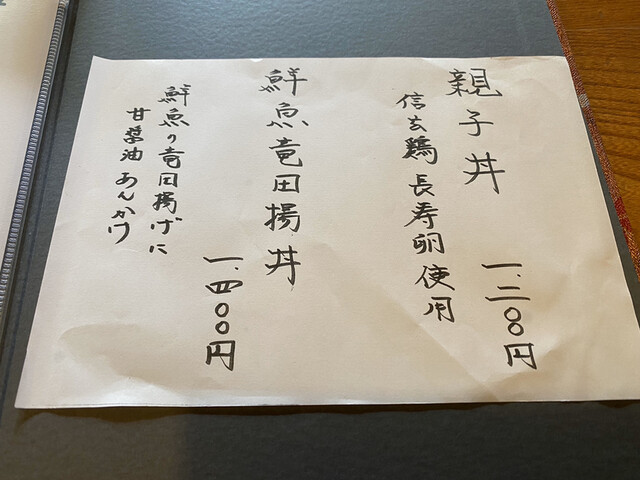 親子丼
一.二〇〇円
信玄鶏 長寿卵使用
鮮魚竜田揚丼
一.四〇〇円
鮮魚の竜田揚げに
甘醤油あんかけ